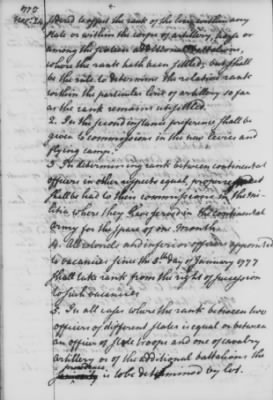 strued to affect the rank of the line within any
State or within the corps of artillery, horse or
among the sixteen additional battalions,
where the rank hath been settled, but shall
be the rule to determine the relative rank
within the particular line of artillery so far
as the rank remains unsettled.
2. In the second instance preference shall be
given to commissions in the new levies and
flying camp.
3 In determining rank between continental
officers in other respects equal, proper respect
shall be had to their commissions in the mi-
litia where they have served in the continental
army for the space of one month.
4. All colonels and inferior officers appointed
to vacancies since the 5th day of January 1777
shall take rank from the right of succession
to such vacancies
5. In all cases where the rank between two
officers of different states is equal or between
an officer of state troops and one of cavalry
artillery or of the additional battalions the
precedence
is to be determined by lot.